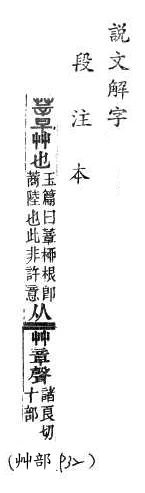 説文解字
段注本
蔁艸也
玉篇曰蔁柳根即
蔏陸也此非許意
从艸章聲
諸良切
十部
(艸部 P32)